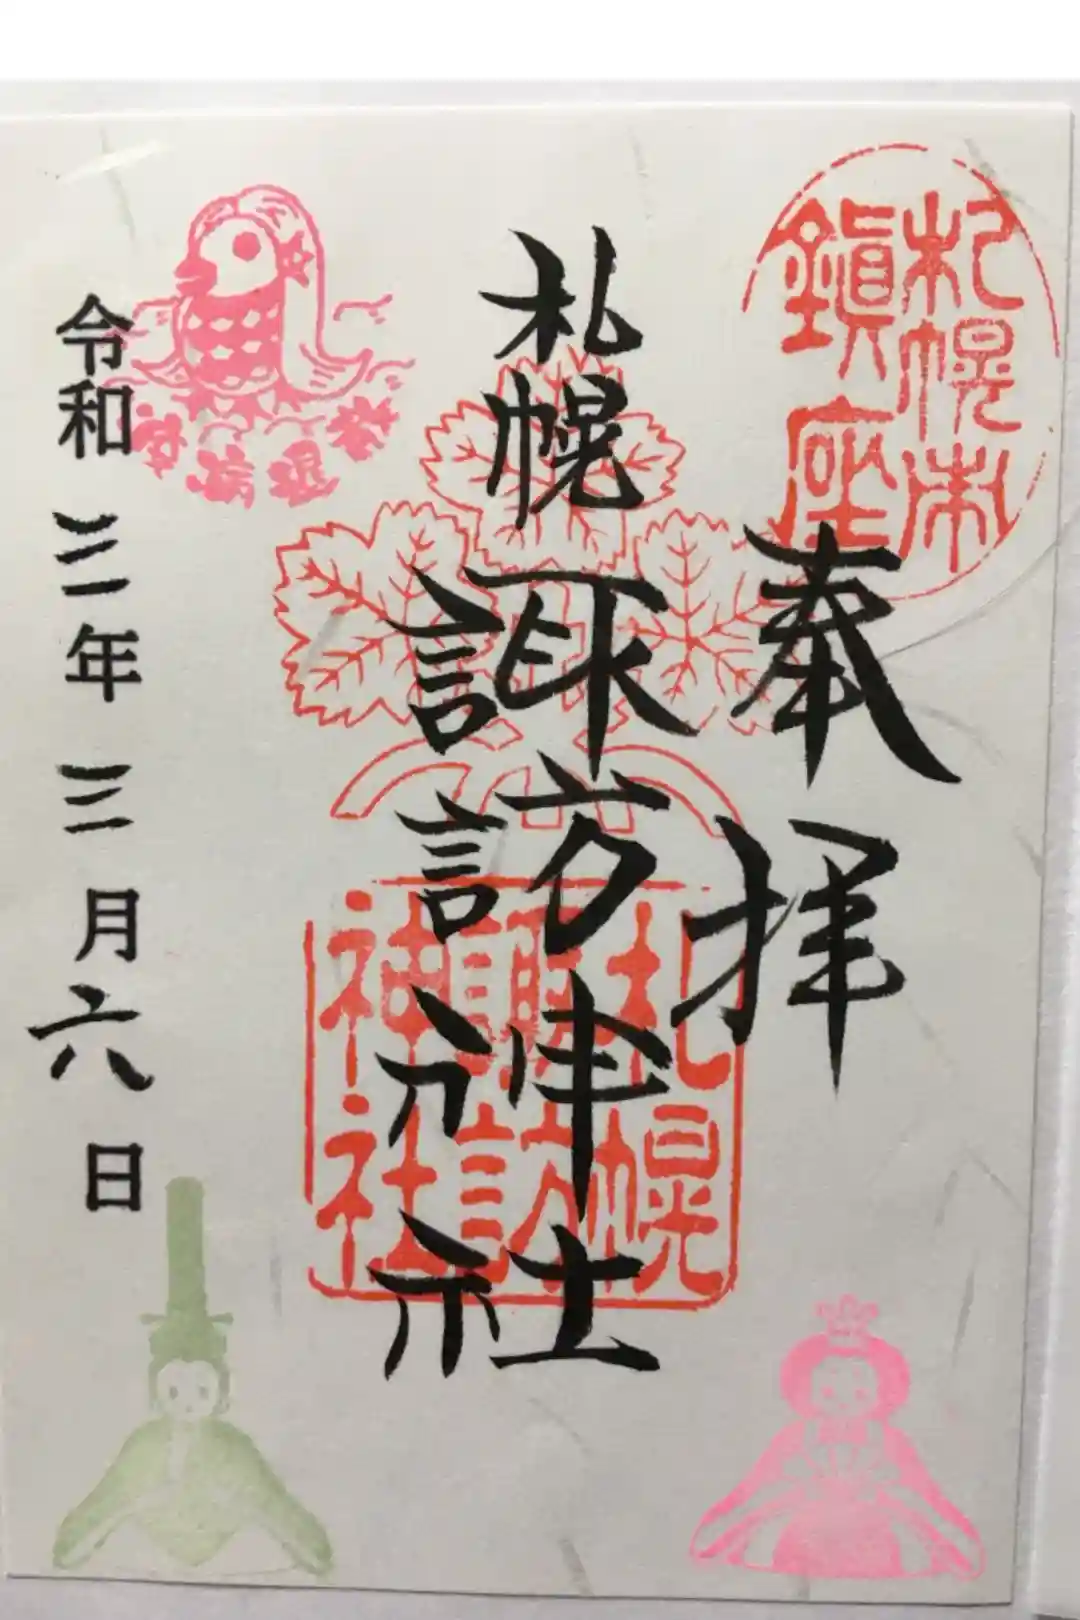 札幌市
鎭座
奉拝
札幌諏訪神社
札幌
諏訪
神社
疫病退散
令和三年三月六日